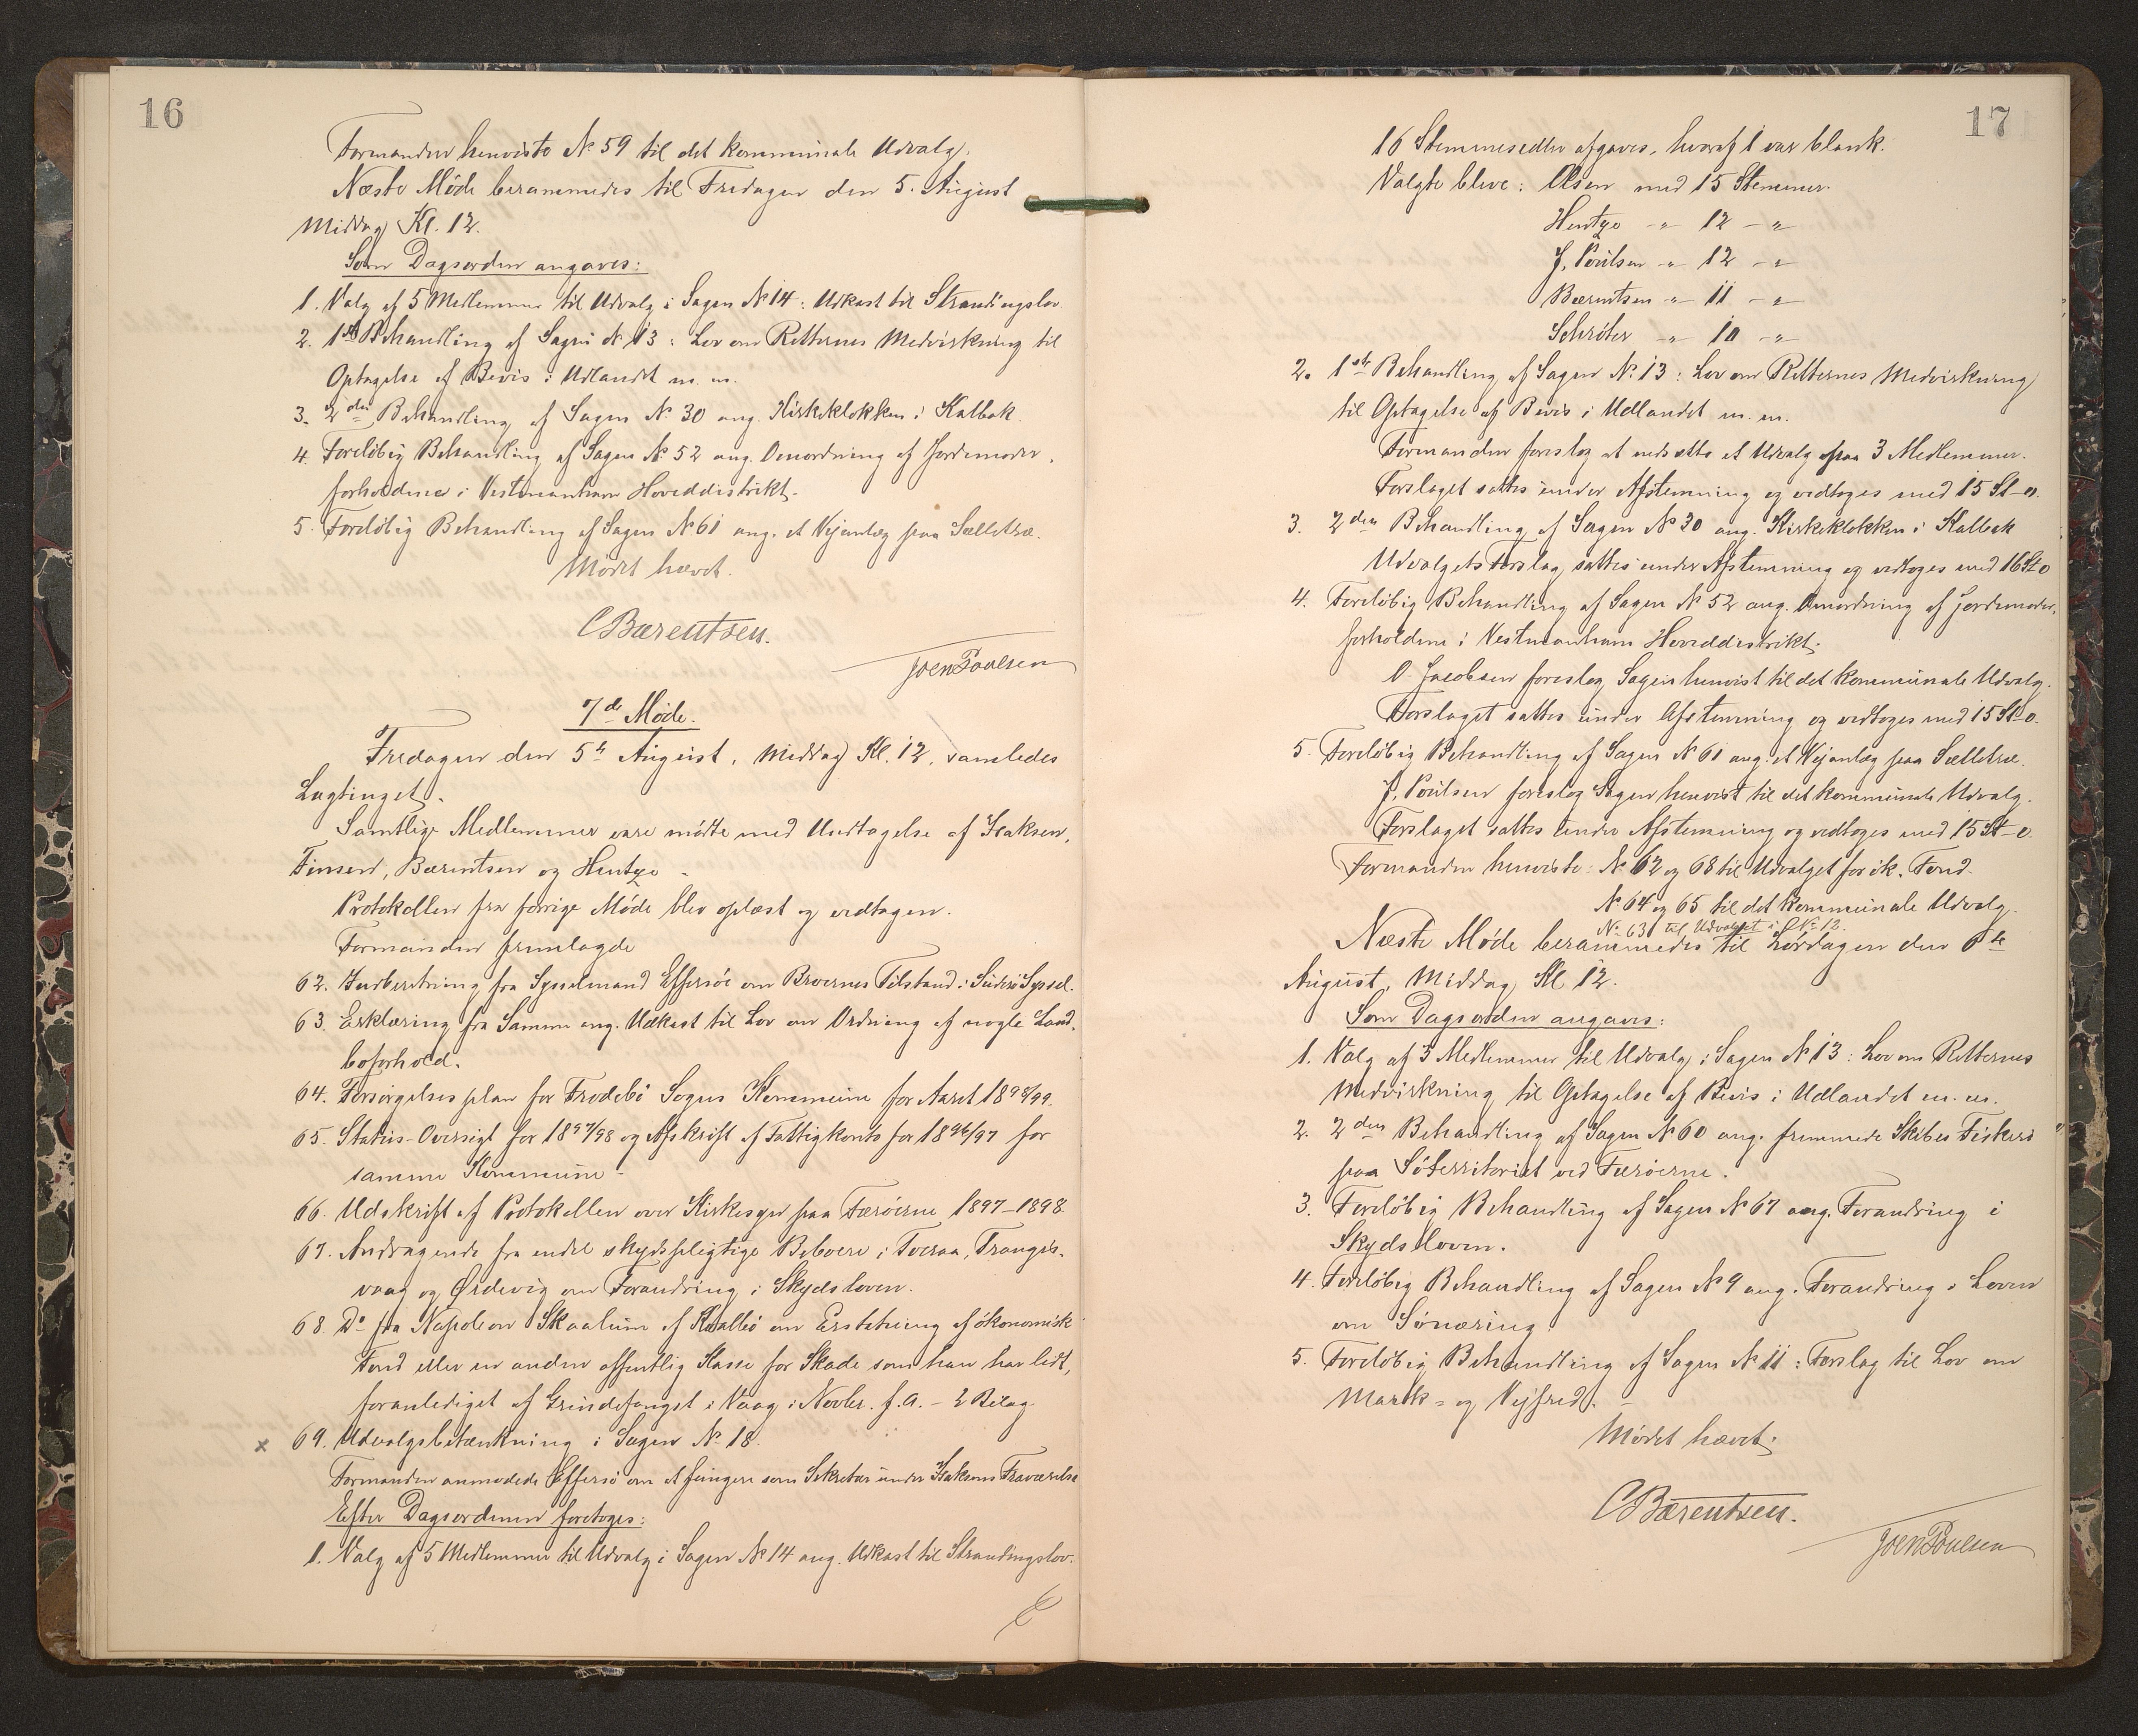 16
Formanden henviste No 59 til det kommunale Udvalg.
Næste Møde berammedes til Fredagen den 5. August
Middag Kl. 12.
Som Dagsorden angaves:
1. Valg af 5 Medlemmer til Udvalg i Sagen No 14: Udkast til Strandingslov.
2. 1ste Behandling af Sagen No 13: Lov om Retternes Medvirkning til
Optagelse af Bevis i Udlandet m. m.
3. 2den Behandling af Sagen No 30 ang. Kirkeklokken i Kalbak.
4. Foreløbig Behandling af Sagen No 52 ang. Omordning af Jordemoder-
forholdene i Vestmanhavn Hoveddistrikt.
5. Foreløbig Behandling af Sagen No 61 ang. et Vejanlæg paa Selletræ.
Mødet hævet.
CBærentsen.
Joen Poulsen
7de Møde.
Fredagen den 5te August, Middag Kl. 12, samledes
Lagtinget.
Samtlige Medlemmer vare mødte med Undtagelse af Isaksen,
Finsen, Bærentsen og Hentze.
Protokollen fra forrige Møde blev oplæst og vedtagen.
Formanden fremlagde
62. Indberetning fra Sysselmand Effersøe om Broernes Tilstand i Suderø Syssel.
63. Erklæring fra Samme ang. Udkast til Lov om Ordning af nogle Land-
boforhold.
64. Forsørgelsesplan for Frodebø Sogns Kommune for Aaret 1898/99.
65. Status-Oversigt for 1897/98 og Afskrift af Fattigkonto for 1896/97 for
samme Kommune.
66. Udskrift af Protokollen over Kirkesyn paa Færøerne 1897-1898.
67. Andragende fra endel skydspligtige Beboere i Tveraa, Trangis-
vaag og Ørdevig om Forandring i Skydsloven.
68. Do fra Napoleon Skaalum af Kvalbø om Erstatning af økonomisk
Fond eller en anden offentlig Kasse for Skade som han har lidt,
foranlediget af Grindefangst i Vaag i Novbr. f. A. - 2 Bilag.
x 69. Udvalgsbetænkning i Sagen No 18.
Formanden anmodede Effersø om at fungere som Sekretær under Isaksens Fraværelse
Efter Dagsordenen foretoges:
1. Valg af 5 Medlemmer til Udvalg i Sagen No 14 ang. Udkast til Strandingslov.
17
16 Stemmesedler afgaves, hvoraf 1 var blank.
Valgte bleve: Olsen med 15 Stemmer.
Hentze -"- 12 -"-
J. Poulsen -"- 12 -"-
Bærentsen -"- 11 -"-
Schrøter -"- 10 -"-
2. 1ste Behandling af Sagen No 13: Lov om Retternes Medvirkning
til Optagelse af Bevis i Udlandet m. m.
Formanden foreslog at nedsætte et Udvalg paa 3 Medlemmer.
Forslaget sattes under Afstemning og vedtoges med 15 St-0.
3. 2den Behandling af Sagen No 30 ang. Kirkeklokken i Kalbak
Udvalgets Forslag sattes under Afstemning og vedtoges med 16 St-0
4. Foreløbig Behandling af Sagen No 52 ang. Omordning af Jordemoder-
forholdene i Vestmanhavn Hoveddistrikt.
O. Jacobsen foreslog Sagen henvist til det kommunale Udvalg.
Forslaget sattes under Afstemning og vedtoges med 15 St-0.
5. Foreløbig Behandling af Sagen No 61 ang. et Vejanlæg paa Selletræ.
J. Poulsen foreslog Sagen henvist til det kommunale Udvalg.
Forslaget sattes under Afstemning og vedtoges med 15 St-0.
Formanden henviste: No 62 og 68 til Udvalget for øk. Fond.
No 64 og 65 til det kommunale Udvalg.
No 63 til Udvalget i No 12.
Næste Møde berammedes til Lørdagen den 6te
August, Middag Kl 12.
Som Dagsorden angaves:
1. Valg af 3 Medlemmer til Udvalg i Sagen No 13: Lov om Retternes
Medvirkning til Optagelse af Bevis i Udlandet m. m.
2. 2den Behandling af Sagen No 60 ang. fremmede Skibes Fiskeri
paa Søterritoriet ved Færøerne.
3. Foreløbig Behandling af Sagen No 67 ang. Forandring i
Skydsloven.
4. Foreløbig Behandling af Sagen No 9 ang. Forandring i Loven
om Sønæring.
5. Foreløbig Behandling af Sagen No 11: Forslag til Lov om
Mark- og Vejfred.
Mødet hævet.
CBærentsen.
Joen Poulsen